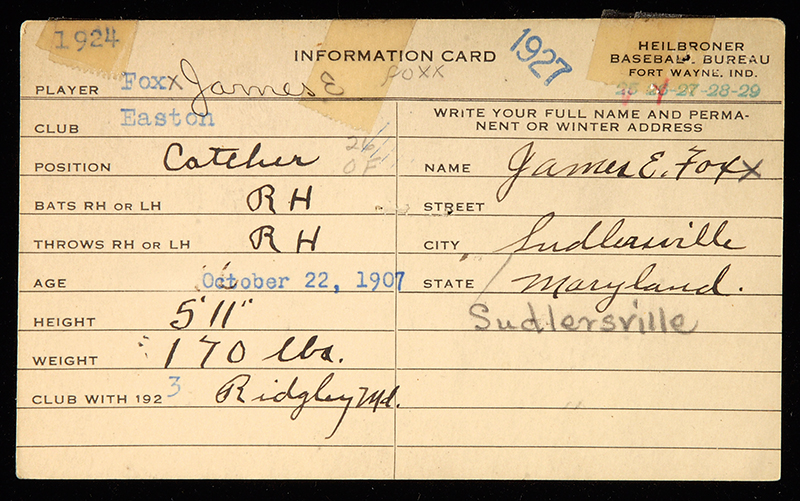 1924
INFORMATION CARD
1927
HEILBRONER
BASEBALL BUREAU
FORT WAYNE, IND.
25-26-27-28-29
PLAYER Foxx James E Foxx
CLUB Easton
WRITE YOUR FULL NAME AND PERMA-
NENT OR WINTER ADDRESS
POSITION Catcher 26/ OF
NAME James E. Foxx
BATS RH OR LH RH
STREET
THROWS RH OR LH RH
CITY Sudlersville
AGE October 22, 1907
STATE Maryland.
Sudlersville
HEIGHT 5'11"
WEIGHT 170 lbs.
CLUB WITH 192 3 Ridgley Md.